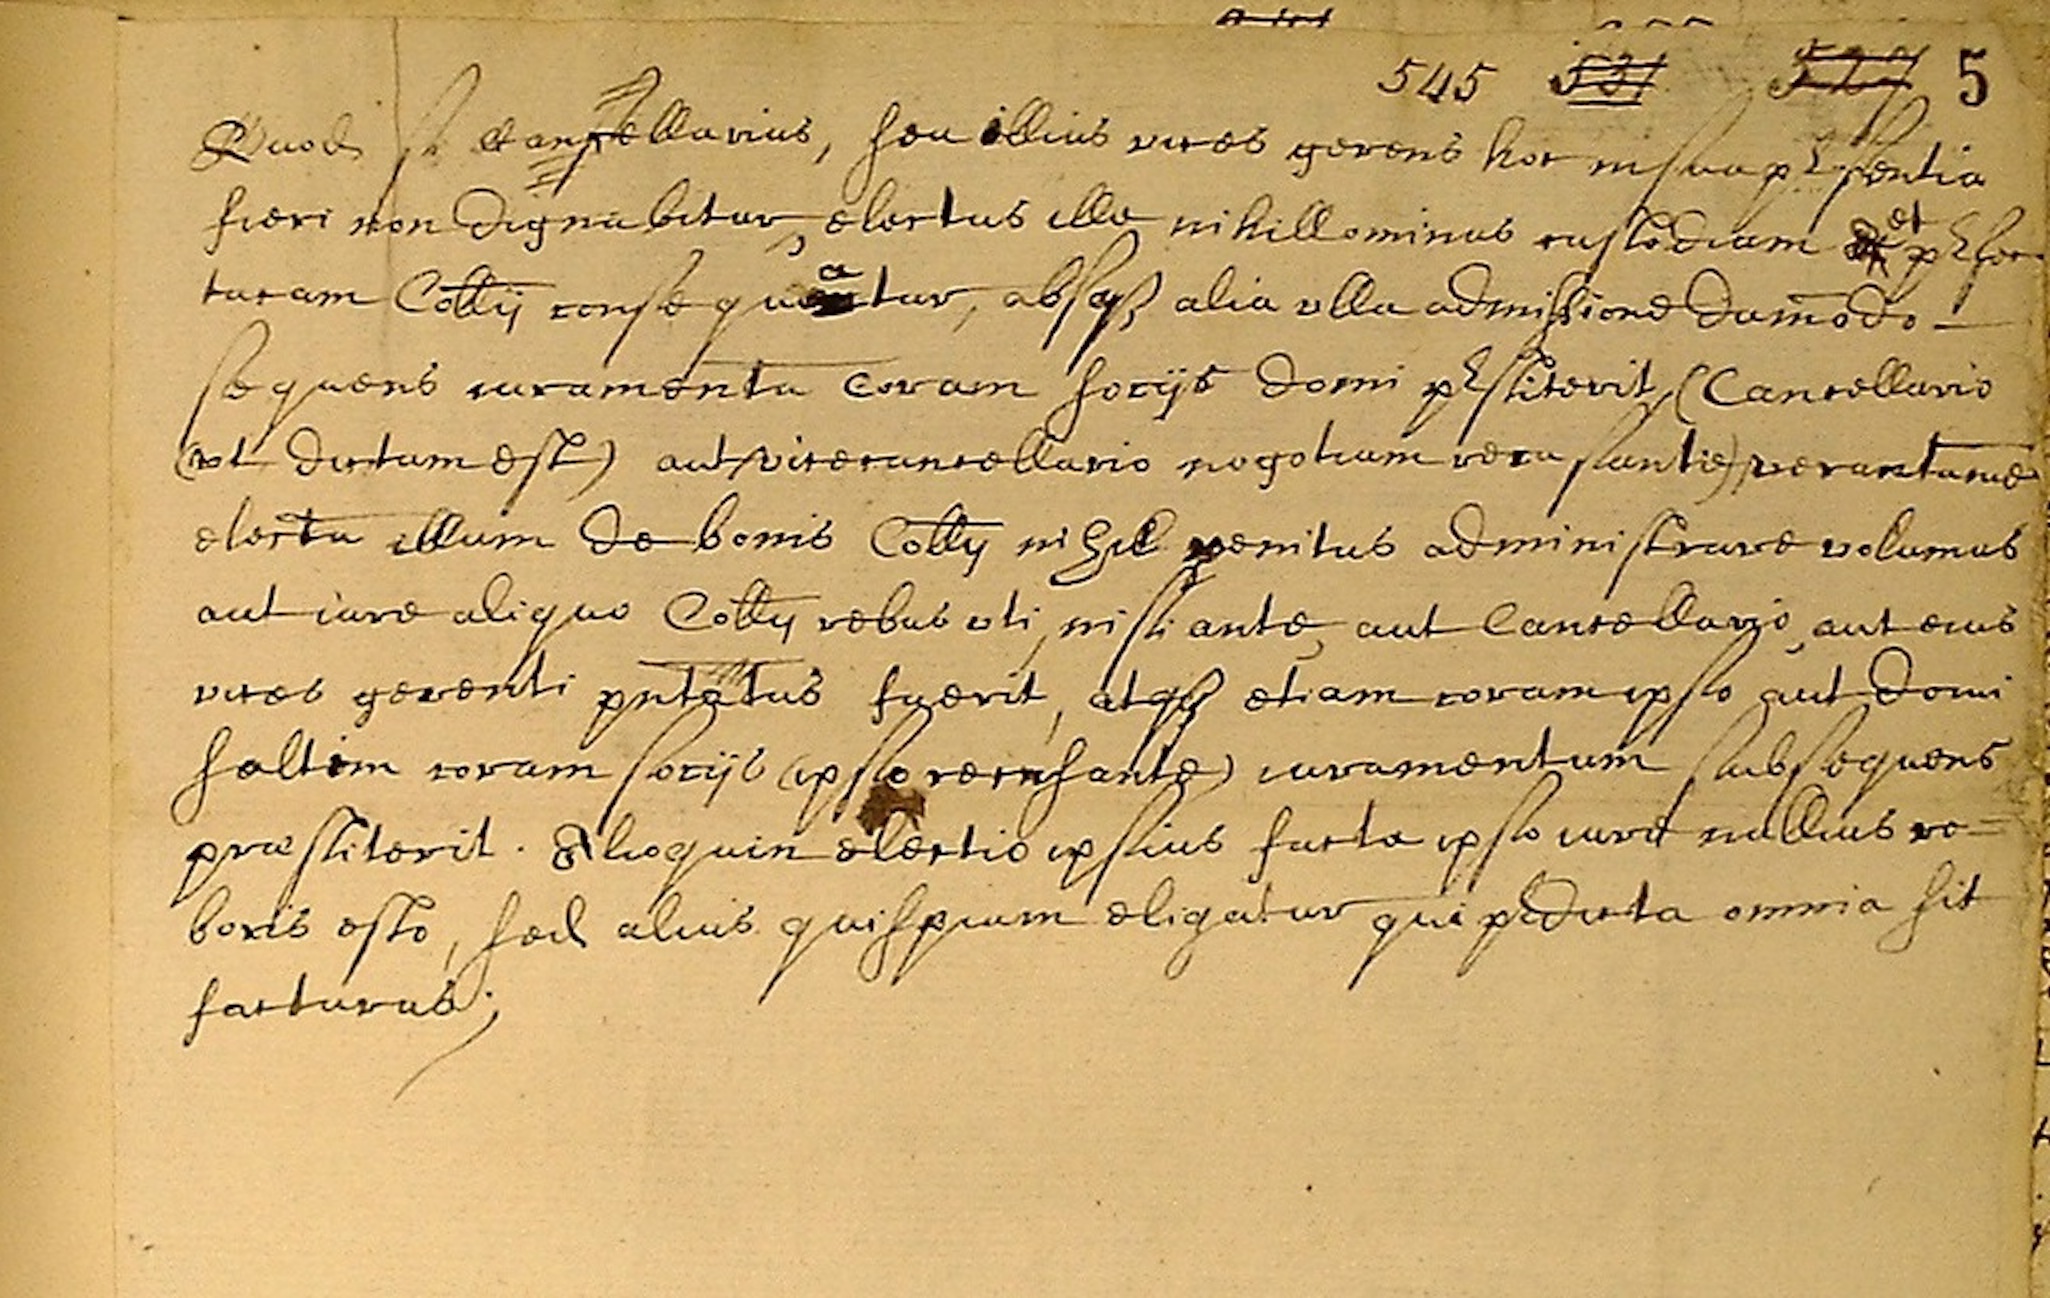 545 531 527 5
Quod si Cancellarius, seu illius vices gerens hoc in sua p͛sentia
fieri non dignabitur, electus ille nihillominus custodiam et p͛fec-
turam Colłij consequatur, absqꝫ alia vlla admissione dum̄odo
sequens iuramentū coram socijs domi p͛stiterit, (Cancellario
(vt dictum est) aut vicecancellario negotium recusantie) veruntamē
electū illum de bonis Colłij nihil penitus administrare volumus
aut iure aliquo Colłij rebus vti, nisi ante, aut Cancellario, aut eius
vices gerenti pn̄tatus fuerit, atqꝫ etiam coram ipso aut domi
saltem coram socijs (ipso recusante) iuramentum subsequens
præstiterit. Alioquin electio ipsius facta ipso iure nullius ro=
boris esto, sed alius quispiam eligatur qui p͛dicta omnia sit
facturus;